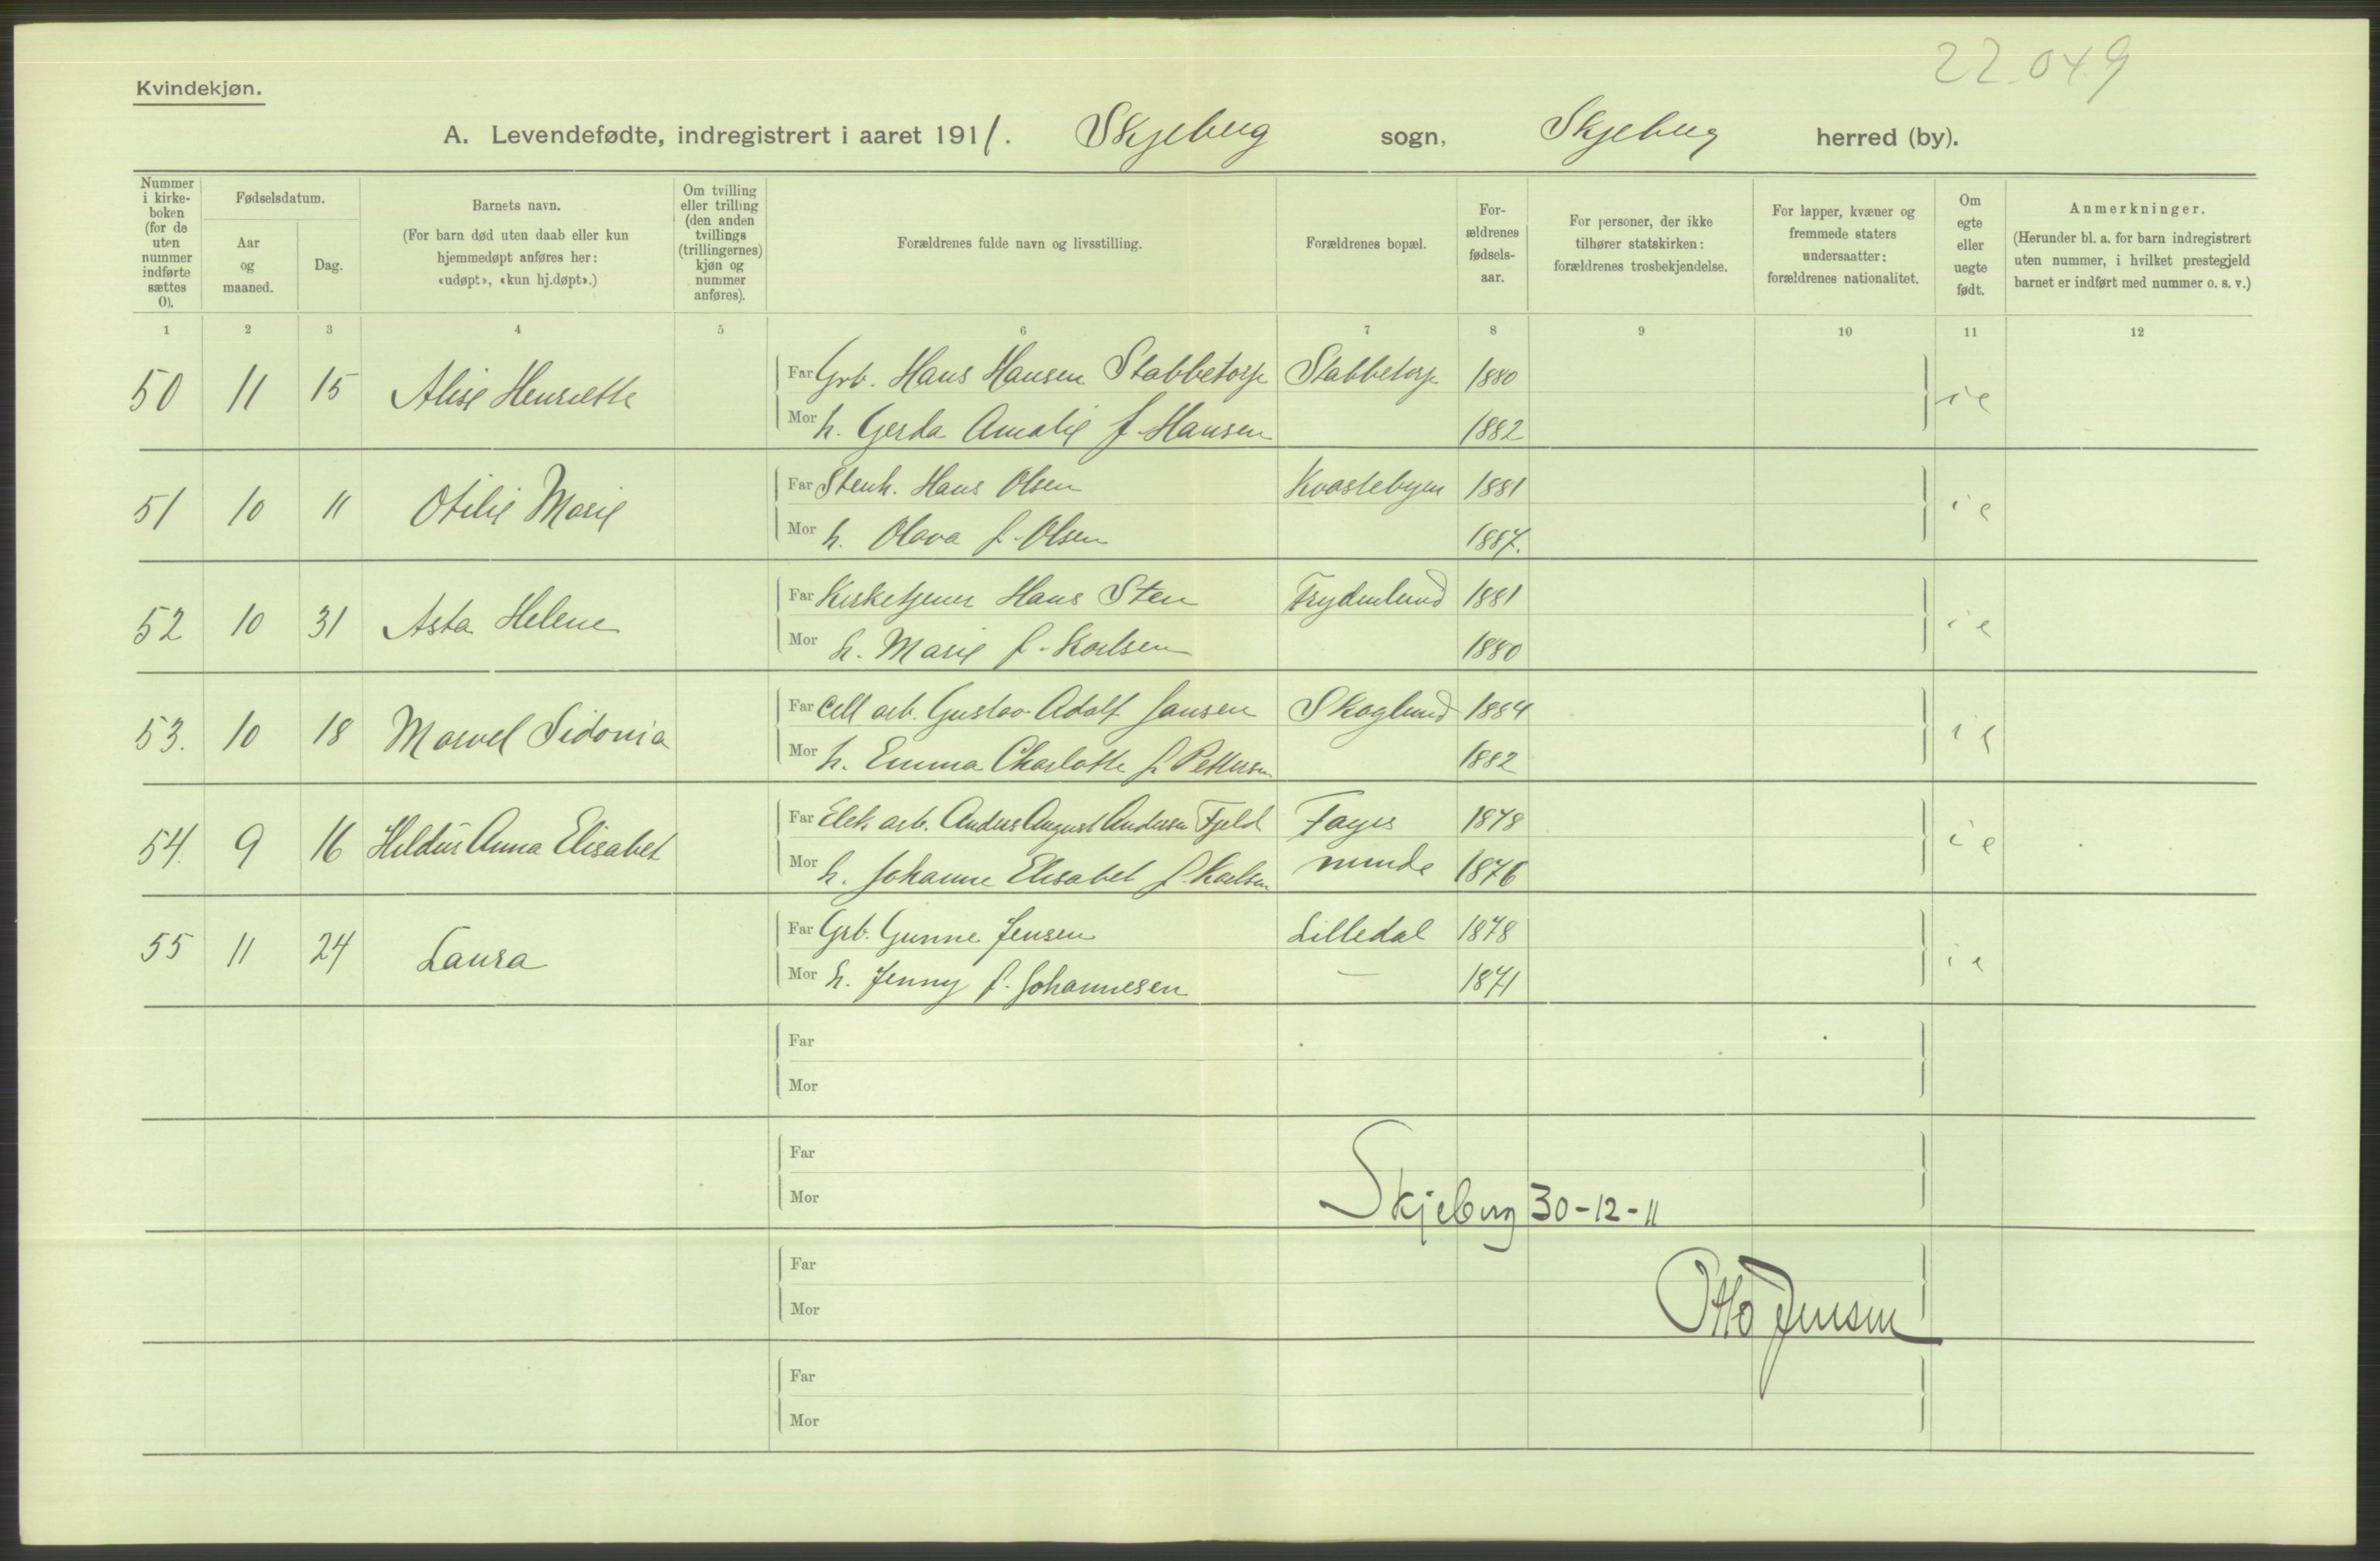 22.049
Kvindekjøn.
A. Levendefødte, indregistrert i aaret 1911. Skjeberg sogn, Skjeberg herred (by).
Nummer i kirke-boken (for de uten nummer indførte sættes 0).
Fødselsdatum.
Aar og maaned.
Dag.
Barnets navn.
(For barn død uten daab eller kun hjemmedøpt anføres her: «udøpt», «kun hj.døpt».)
Om tvilling eller trilling (den anden tvillings (trillingernes) kjøn og nummer anføres).
Forældrenes fulde navn og livsstilling.
Forældrenes bopæl.
For-ældrenes fødsels-aar.
For personer, der ikke tilhører statskirken: forældrenes trosbekjendelse.
For lapper, kvæner og fremmede staters undersaatter: forældrenes nationalitet.
Om egte eller uegte født.
Anmerkninger.
(Herunder bl. a. for barn indregistrert uten nummer, i hvilket prestegjeld barnet er indført med nummer o. s. v.)
1 2 3 4 5 6 7 8 9 10 11 12
50 11 15 Alise Henriette Far Grb. Hans Hansen Stabbetorp Stabbetorp 1880 i e
Mor h. Gerda Amalie f. Hansen 1882
51 10 11 Otilie Marie Far Stenh. Hans Olsen Kvastebyen 1881 i e
Mor h. Olava f. Olsen 1887.
52 10 31 Asta Helene Far Kirketjener Hans Sten Frydenlund 1881 i e
Mor h. Marie f. Karlsen 1880
53. 10 18 Marvel Sidonia Far Cell arb. Gustav Adolf Jansen Skoglund 1884 i e
Mor h. Emma Charlotte f. Pettersen 1882
54. 9 16 Anna Elisabet Far Elek. arb. Anders August Andersen Fjeld 1878 i e
Mor h. Johanne Elisabet f. Karlsen minde 1876
55 11 24 Laura Far Grb. Gunne Jensen Lilledal 1878 i e
Mor h. Jenny f. Johannesen — 1871
Far
Mor
Far
Mor
Skjeberg 30-12-11
Far
Mor
Otto Jensen
Far
Mor